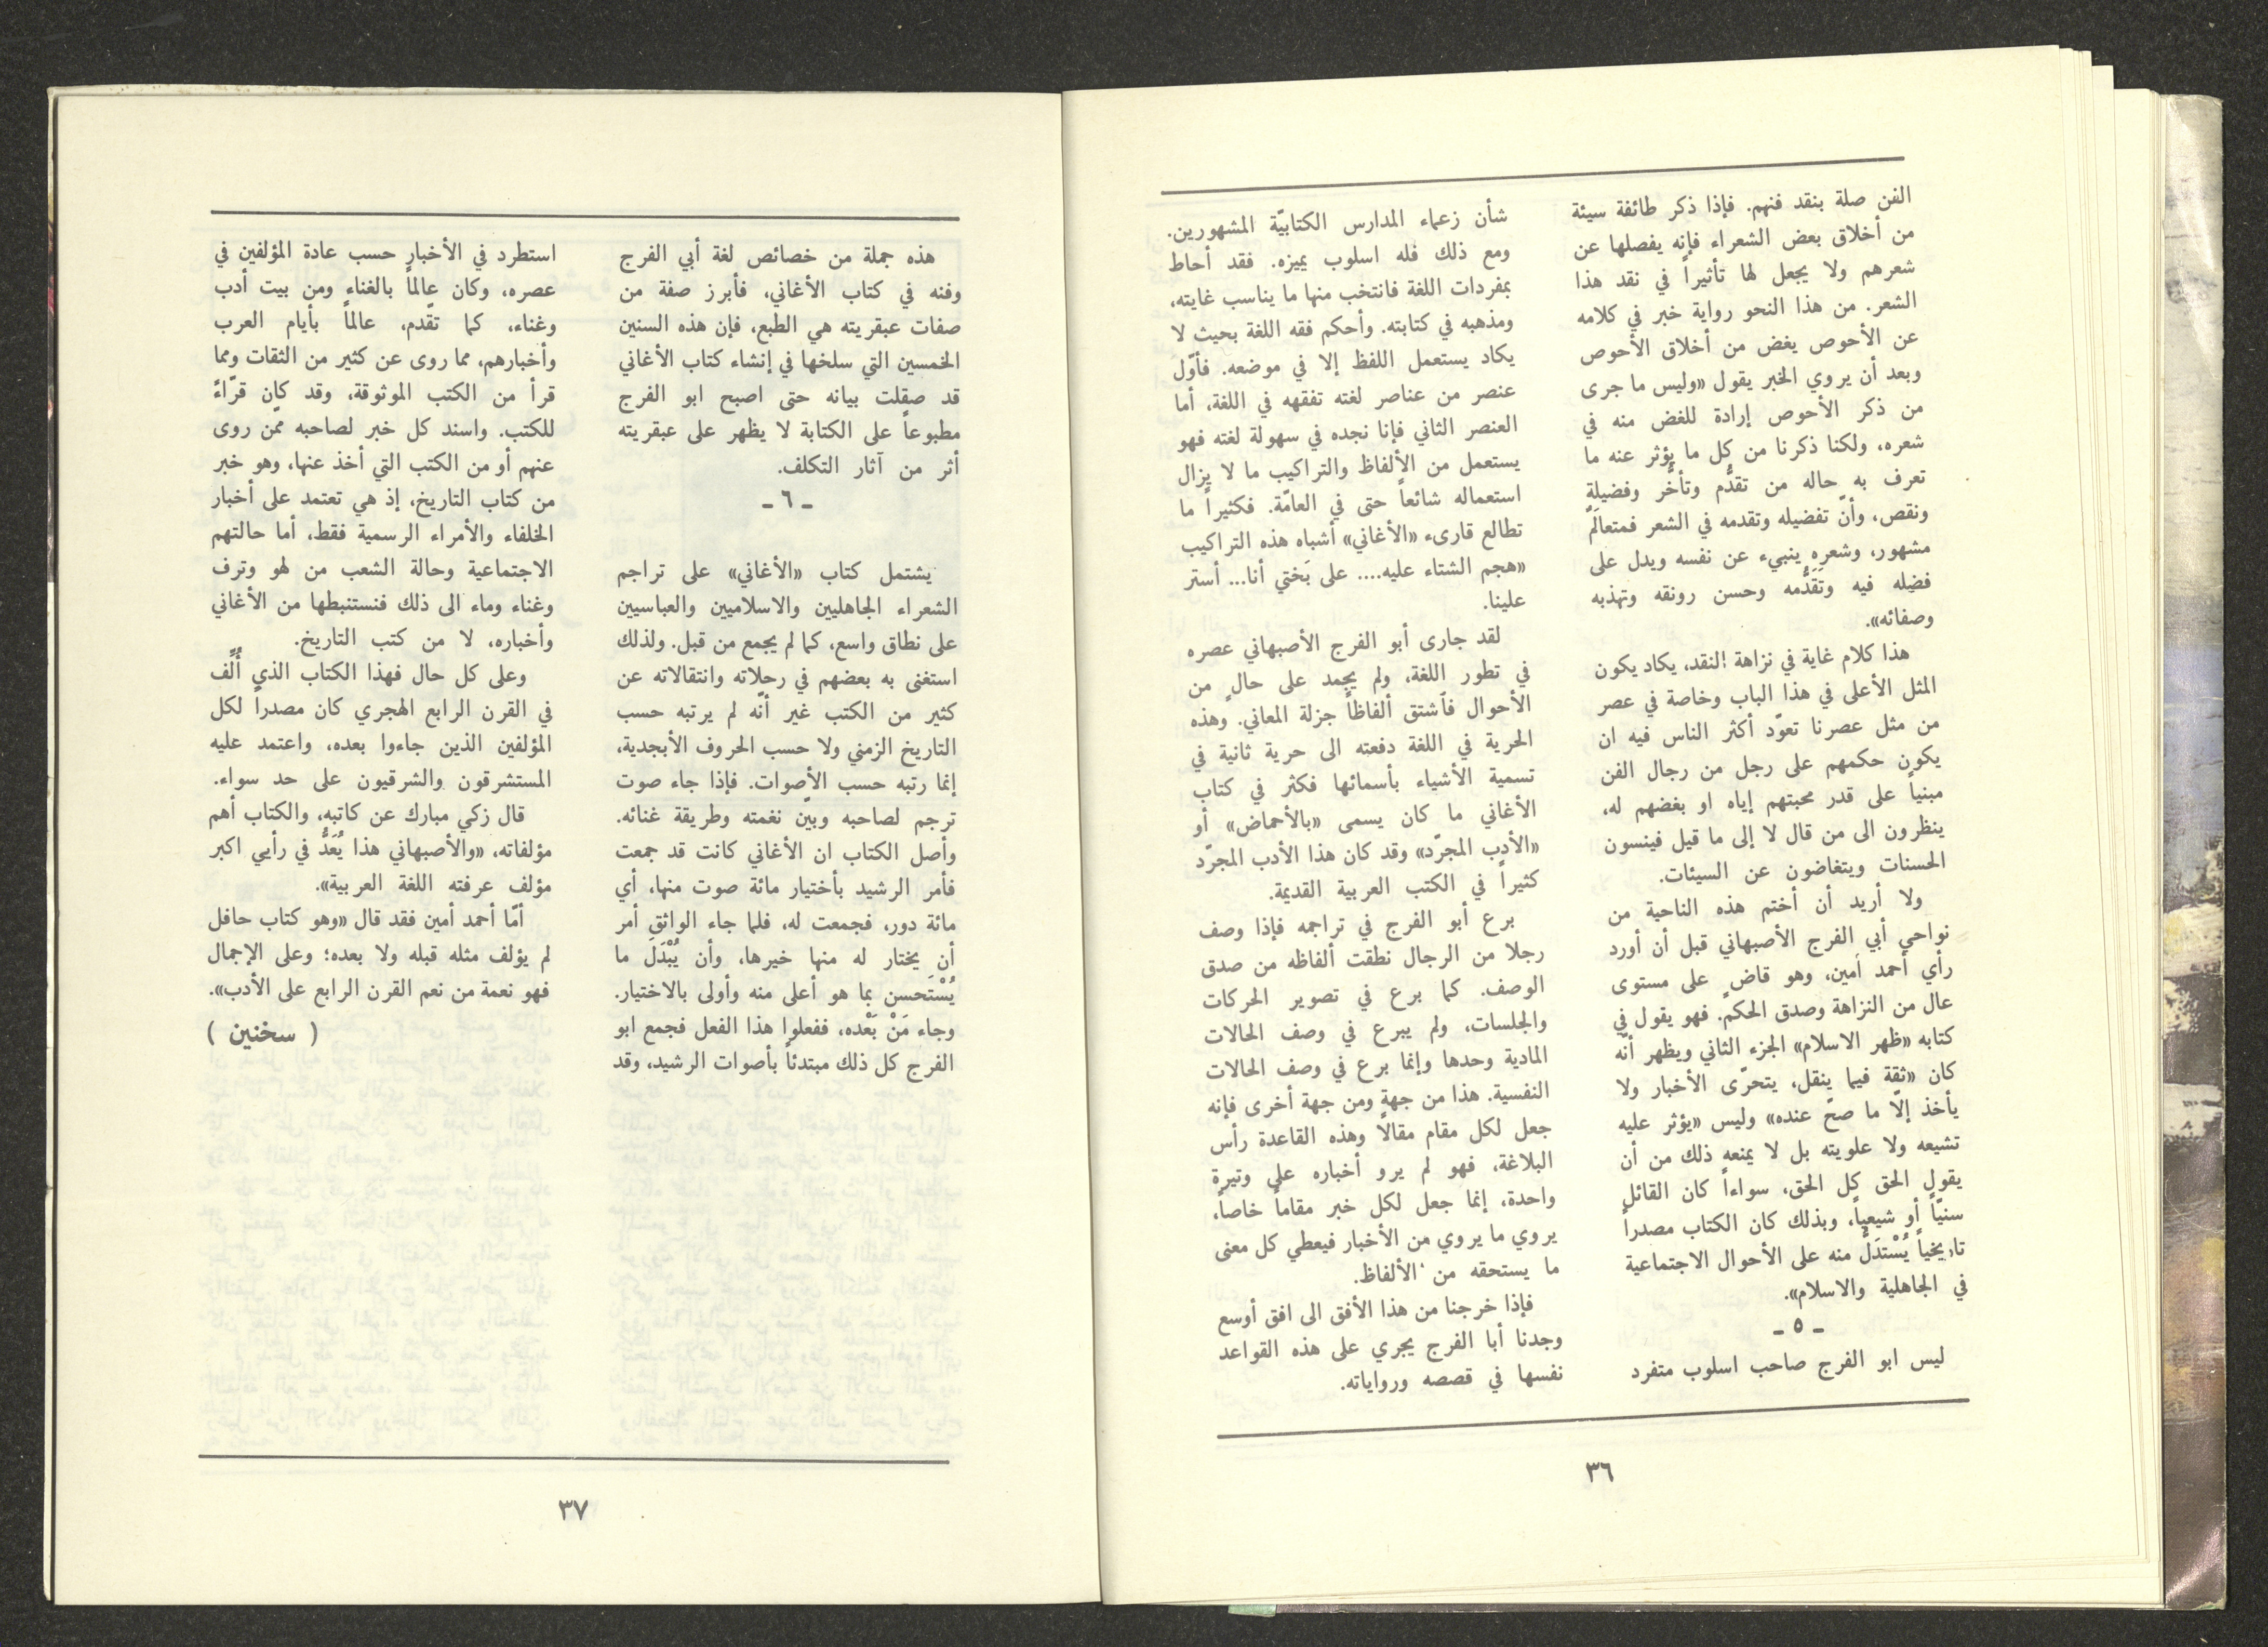 الفن صلة بنقد فنهم. فإذا ذكر طائفة سيئة
من أخلاق بعض الشعراء فإنه يفصلها عن
شعرهم ولا يجعل لها تأثيراً في نقد هذا
الشعر. من هذا النحو رواية خبر في كلامه
عن الأحوص يغض من أخلاق الأحوص
وبعد أن يروي الخبر يقول «وليس ما جرى
من ذكر الأحوص إرادة للغض منه في
شعره، ولكنا ذكرنا من كل ما يؤثر عنه ما
تعرف به حاله من تقدُّم وتأخُّر وفضيلةٍ
ونقص، وأنّ تفضيله وتقدمه في الشعر فمتعالَمٌ
مشهور، وشعره ينبيء عن نفسه ويدل على
فضله فيه وتَقَدُّمه وحسن رونقه وتهذبه
وصفائه».
هذا كلام غاية في نزاهة النقد، يكاد يكون
المثل الأعلى في هذا الباب وخاصة في عصر
من مثل عصرنا تعوّد أكثر الناس فيه ان
يكون حكمهم على رجل من رجال الفن
مبنياً على قدر محبتهم إياه او بغضهم له،
ينظرون الى من قال لا إلى ما قيل فينسون
الحسنات ويتغاضون عن السيئات.
ولا أريد أن أختم هذه الناحية من
نواحي أبي الفرج الأصبهاني قبل أن أورد
رأي أحمد أمين، وهو قاضٍ على مستوى
عال من النزاهة وصدق الحكم. فهو يقول في
كتابه «ظهر الاسلام» الجزء الثاني ويظهر أنّه
كان «ثقة فيما ينقل، يتحرّى الأخبار ولا
يأخذ إلّا ما صحّ عنده» وليس «يؤثر عليه
تشيعه ولا علويته بل لا يمنعه ذلك من أن
يقول الحق كل الحق، سواءاً كان القائل
سنيّاً أو شيعياً، وبذلك كان الكتاب مصدراً
تاريخياً يُسْتدَلُّ منه على الأحوال الاجتماعية
في الجاهلية والاسلام».
ـ ٥ ـ
ليس ابو الفرج صاحب اسلوب متفرد
شأن زعماء المدارس الكتابيّة المشهورين.
ومع ذلك فله اسلوب يميزه. فقد أحاط
بمفردات اللغة فانتخب منها ما يناسب غايته،
ومذهبه في كتابته. وأحكم فقه اللغة بحيث لا
يكاد يستعمل اللفظ إلا في موضعه. فأوّل
عنصر من عناصر لغته تفقهه في اللغة، أما
العنصر الثاني فإنا نجده في سهولة لغته فهو
يستعمل من الألفاظ والتراكيب ما لا يزال
استعماله شائعاً حتى في العامّة. فكثيراً ما
تطالع قارىء «الأغاني» أشباه هذه التراكيب
«هجم الشتاء عليه.... على بَختي أنا... أستر
علينا.
لقد جارى أبو الفرج الأصبهاني عصره
في تطور اللغة، ولم يجمد على حالٍ من
الأحوال فاشتق ألفاظاً جزلة المعاني. وهذه
الحرية في اللغة دفعته الى حرية ثانية في
تسمية الأشياء بأسمائها فكثر في كتاب
الأغاني ما كان يسمى «بالأحماض» أو
«الأدب المجرّد» وقد كان هذا الأدب المجرّد
كثيراً في الكتب العربية القديمة.
برع أبو الفرج في تراجمه فإذا وصف
رجلا من الرجال نطقت ألفاظه من صدق
الوصف. كما برع في تصوير الحركات
والجلسات، ولم يبرع في وصف الحالات
المادية وحدها وإنما برع في وصف الحالات
النفسية. هذا من جهة ومن جهة أخرى فإنه
جعل لكل مقام مقالًا وهذه القاعدة رأس
البلاغة، فهو لم يرو أخباره على وتيرة
واحدة، إنما جعل لكل خبر مقاماً خاصاً،
يروي ما يروي من الأخبار فيعطي كل معنى
ما يستحقه من الألفاظ.
فإذا خرجنا من هذا الأفق الى افق أوسع
وجدنا أبا الفرج يجري على هذه القواعد
نفسها في قصصه ورواياته.
٣٦
هذه جملة من خصائص لغة أبي الفرج
وفنه في كتاب الأغاني، فأبرز صفة من
صفات عبقريته هي الطبع، فإن هذه السنين
الخمسين التي سلخها في إنشاء كتاب الأغاني
قد صقلت بيانه حتى اصبح ابو الفرج
مطبوعاً على الكتابة لا يظهر على عبقريته
أثر من آثار التكلف.
ـ ٦ ـ
يشتمل كتاب «الأغاني» على تراجم
الشعراء الجاهليين والاسلاميين والعباسيين
على نطاق واسع، كما لم يجمع من قبل. ولذلك
استغنى به بعضهم في رحلاته وانتقالاته عن
كثير من الكتب غير أنّه لم يرتبه حسب
التاريخ الزمني ولا حسب الحروف الأبجدية،
إنما رتبه حسب الأصوات. فإذا جاء صوت
ترجم لصاحبه وبيّن نغمته وطريقة غنائه.
وأصل الكتاب ان الأغاني كانت قد جمعت
فأمر الرشيد بأختيار مائة صوت منها، أي
مائة دور، فجمعت له، فلما جاء الواثق أمر
أن يختار له منها خيرها، وأن يُبْدَلَ ما
يُسْتَحسن بما هو أعلى منه وأولى بالاختيار.
وجاء مَنْ بَعْده، ففعلوا هذا الفعل فجمع ابو
الفرج كل ذلك مبتدئاً بأصوات الرشيد، وقد
استطرد في الأخبار حسب عادة المؤلفين في
عصره، وكان عالماً بالغناء ومن بيت أدب
وغناء، كما تقّدم، عالماً بأيام العرب
وأخبارهم، مما روى عن كثير من الثقات ومما
قرأ من الكتب الموثوقة، وقد كان قرّاءً
للكتب. واسند كل خبر لصاحبه ممّن روى
عنهم أو من الكتب التي أخذ عنها، وهو خبر
من كتاب التاريخ، إذ هي تعتمد على أخبار
الخلفاء والأمراء الرسمية فقط، أما حالتهم
الاجتماعية وحالة الشعب من لهو وترف
وغناء وماء الى ذلك فنستنبطها من الأغاني
وأخباره، لا من كتب التاريخ.
وعلى كل حال فهذا الكتاب الذي أُلِّف
في القرن الرابع الهجري كان مصدراً لكل
المؤلفين الذين جاءوا بعده، واعتمد عليه
المستشرقون والشرقيون على حد سواء.
قال زكي مبارك عن كاتبه، والكتاب أهم
مؤلفاته، «والأصبهاني هذا يُعَدُّ في رأيي اكبر
مؤلف عرفته اللغة العربية».
أمّا أحمد أمين فقد قال «وهو كتاب حافل
لم يؤلف مثله قبله ولا بعده؛ وعلى الإجمال
فهو نعمة من نعم القرن الرابع على الأدب».
( سخنين )
٣٧